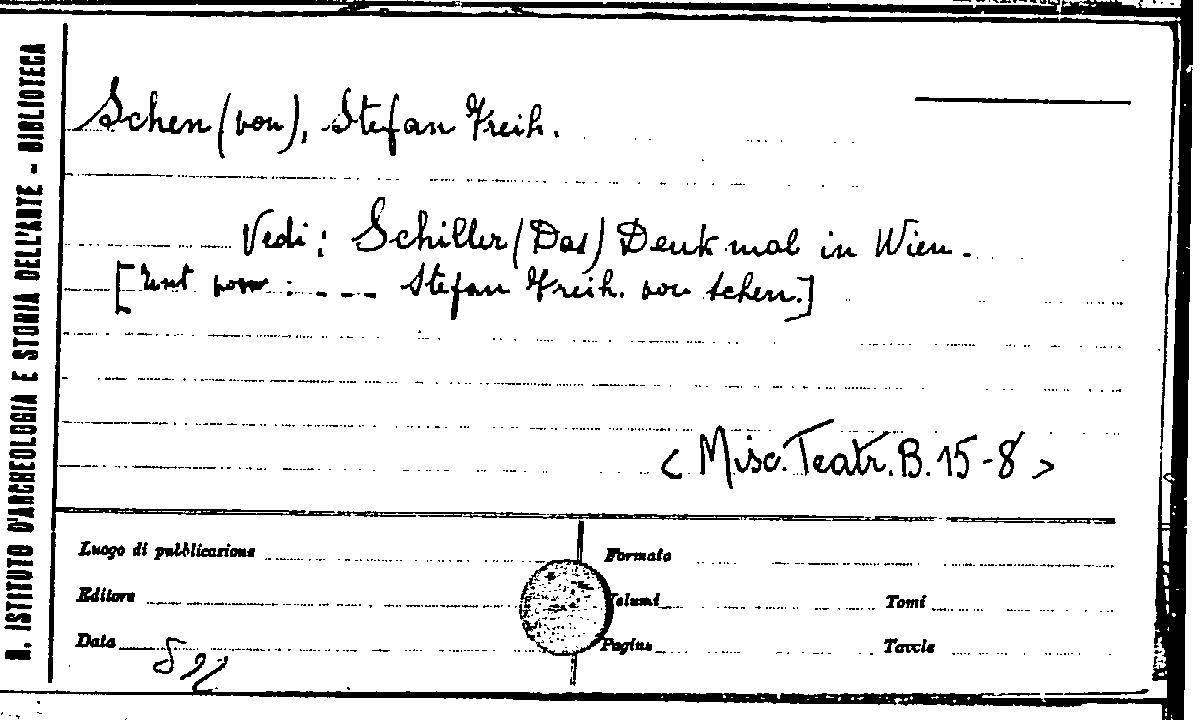 R. ISTITUTO D'ARCHEOLOGIA E STORIA DELL'ARTE - BIBLIOTECA
Schen (von), Stefan Freih.
Vedi: Schiller (Das) Denkmal in Wien.
[Text von: --- Stefan Freih. von Schen.]
< Misc. Teatr. B. 15-8 >
Luogo di pubblicazione
Formato
Editore
Volumi
Tomi
Data
Pagine
Tavole